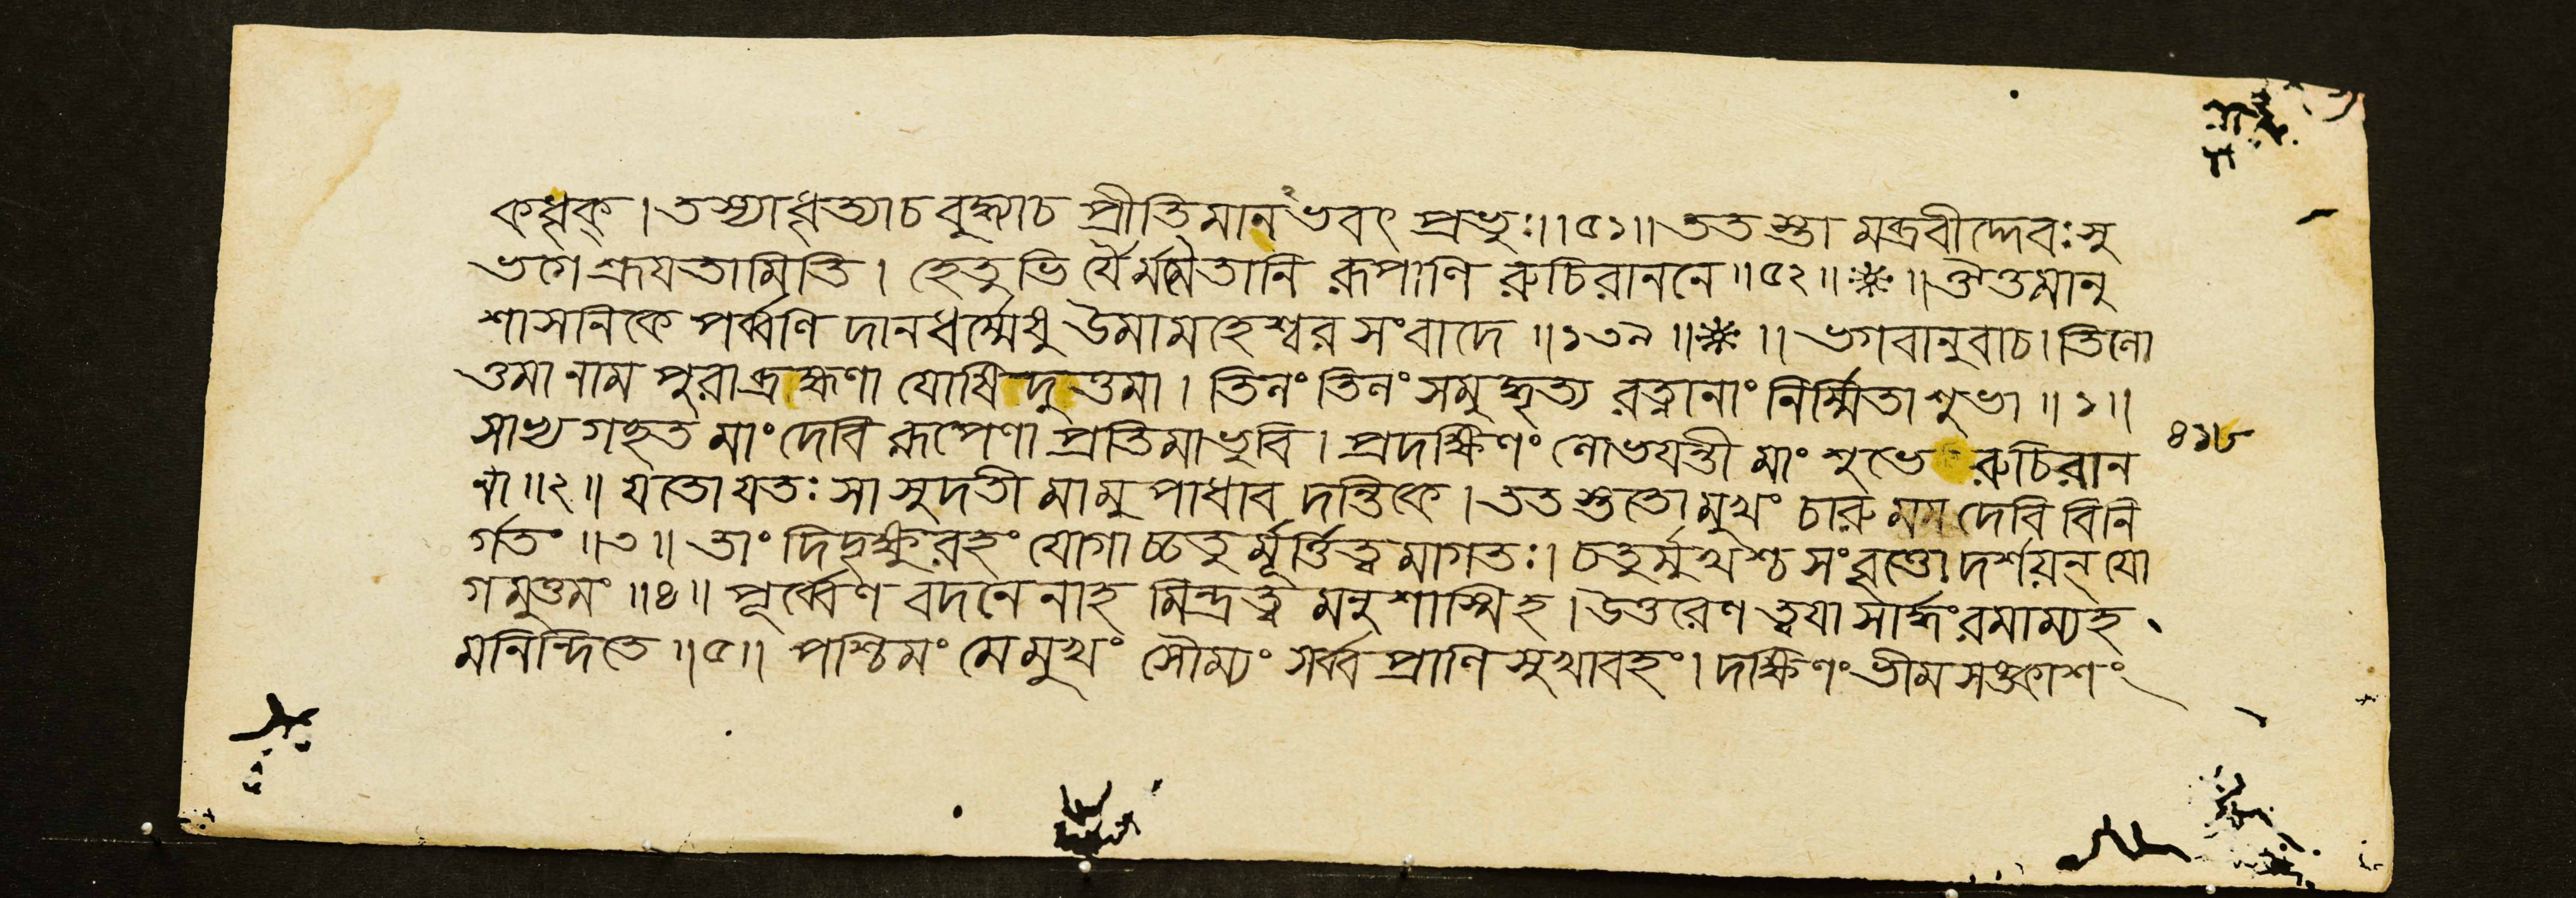 কধৃক্। তস্যা ধৃত্যা চ বুদ্ধ্যা চ প্রীতিমানভবৎ প্রভুঃ॥ ৫১॥ ততস্তামব্রবীদ্দেবঃ সু
ভগে শ্রূয়তামিতি। হেতুভির্যৈর্মমৈতানি রূপাণি রুচিরাননে॥ ৫২॥ ❋॥ ঔত্তমানু
শাসনিকে পর্ব্বণি দানধর্ম্মেষু উমামহেশ্বরসংবাদে॥ ১৩৯॥ ❋॥ ভগবানুবাচ। তিলো
ত্তমা নাম পুরা ব্রহ্মণা যোষিদুত্তমা। তিলং তিলং সমুদ্ধৃত্য রত্নানাং নির্ম্মিতা শুভা॥ ১॥
সাভ্যগচ্ছত মাং দেবি রূপেণাপ্রতিমা ভুবি। প্রদক্ষিণং লোভয়ন্তী মাং শুভে রুচিরান
না॥ ২॥ যতো যতঃ সা সুদতী মামুপাধাবদন্তিকে। ততস্ততো মুখং চারু মম দেবি বিনি
র্গতং॥ ৩॥ তাং দিদৃক্ষুরহং যোগাচ্চতুর্মূর্ত্তিত্বমাগতঃ। চতুর্মুখশ্চ সংবৃত্তো দর্শয়ন্ যো
গমুত্তমং॥ ৪॥ পূর্ব্বেণ বদনেনাহমিন্দ্রত্বমনুশাস্মিহ। উত্তরেণ ত্বয়া সার্দ্ধং রমাম্যহ
মনিন্দিতে॥ ৫॥ পশ্চিমং মে মুখং সৌম্যং সর্ব্বপ্রাণিসুখাবহং। দক্ষিণং ভীমসঙ্কাশং